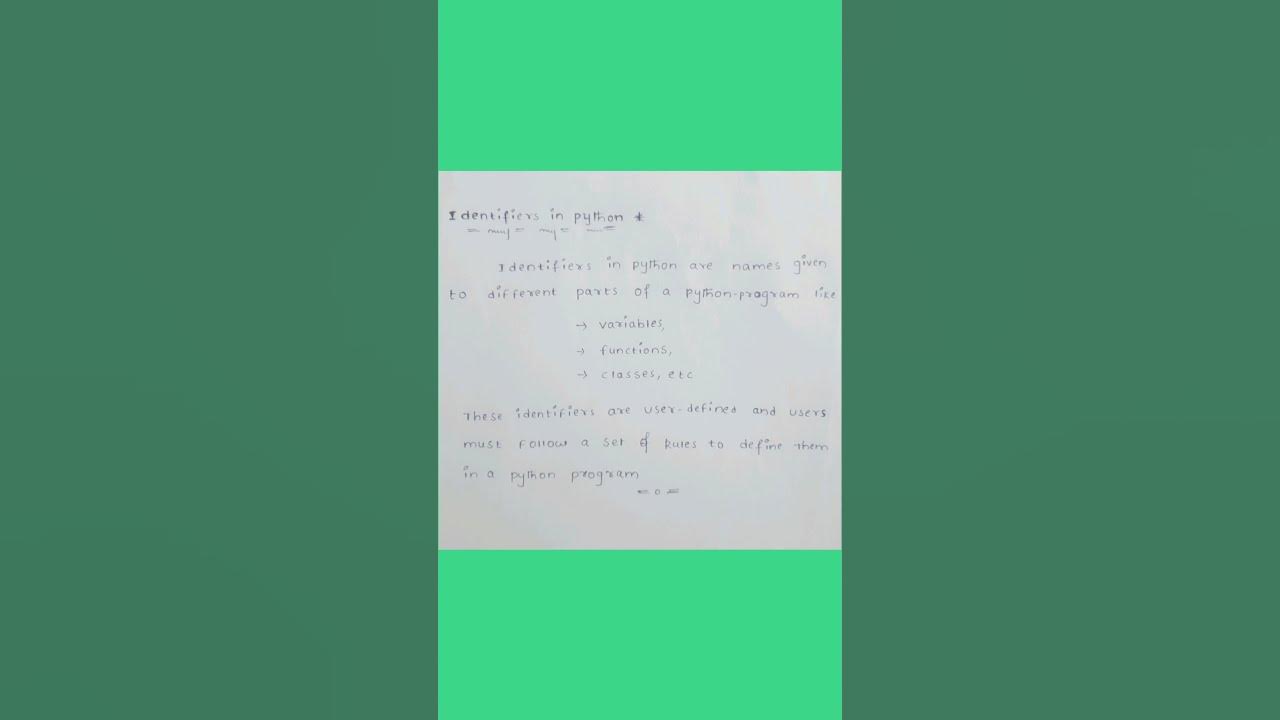 Identifiers in python *
Identifiers in python are names given
to different parts of a python-program like
→ variables,
→ functions,
→ classes, etc
These identifiers are user-defined and users
must follow a set of Rules to define them
in a python program
= 0 =